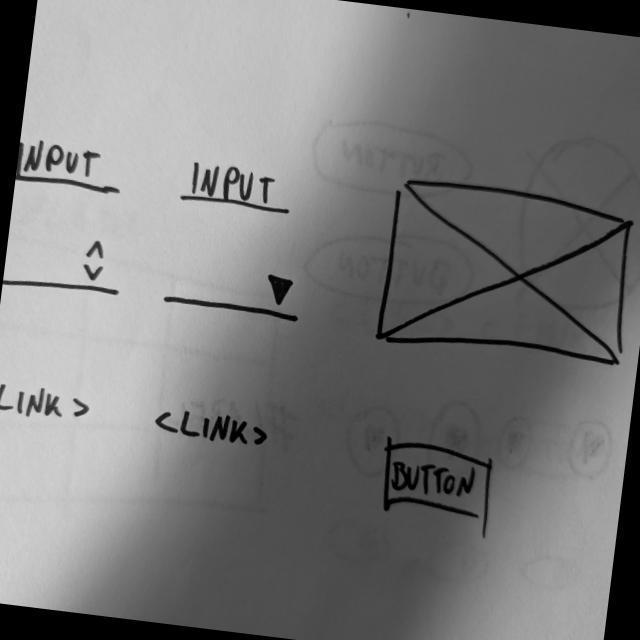 INPUT
INPUT
LINK>
<LINK>
BUTTON